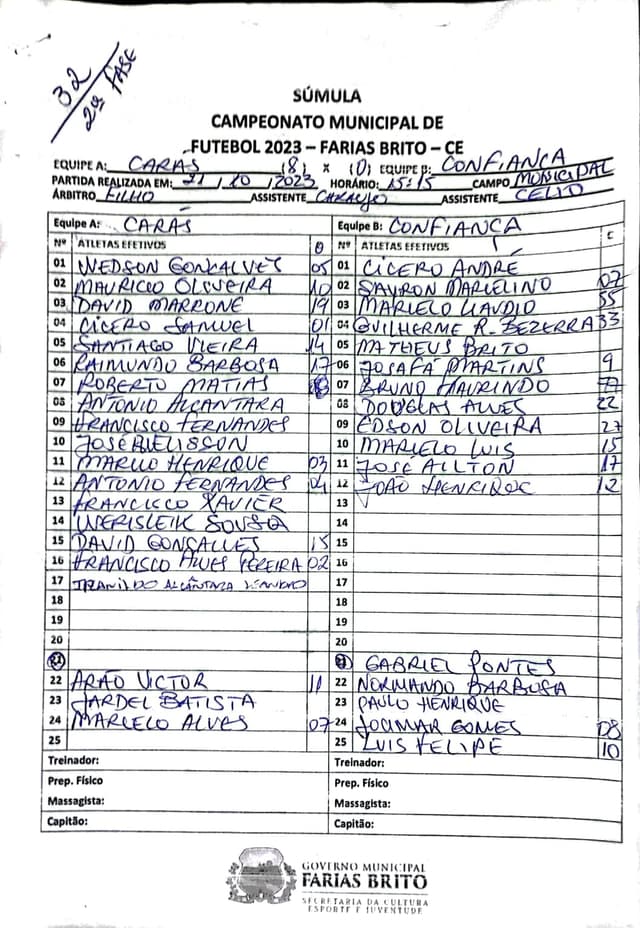 32
2ª FASE
SÚMULA
CAMPEONATO MUNICIPAL DE
FUTEBOL 2023 – FARIAS BRITO – CE
EQUIPE A: CARAS (8) x (0) EQUIPE B: CONFIANCA
PARTIDA REALIZADA EM: 21 / 10 /2023 HORÁRIO: 15:15 CAMPO MUNICIPAL
ÁRBITRO FILHO ASSISTENTE CARAUJO ASSISTENTE CELIO
Equipe A: CARAS Equipe B: CONFIANCA
Nº ATLETAS EFETIVOS Nº ATLETAS EFETIVOS C
01 WEDSON GONCALVES 05 01 CÍCERO ANDRE
02 MAURICIO OLIVEIRA 10 02 SAYRON MARCELINO 07
03 DAVID MARRONE 19 03 MARCELO CLAUDIO 55
04 CÍCERO SAMUEL 01 04 GUILHERME R. BEZERRA 33
05 SANTIAGO VIEIRA 14 05 MATHEUS BRITO
06 RAIMUNDO BARBOSA 17 06 JOSAFÁ MARTINS 9
07 ROBERTO MATIAS 07 BRUNO 77
08 ANTONIO ALCANTARA 08 DOUGLAS ALVES 22
09 FRANCISCO FERNANDES 09 EDSON OLIVEIRA 27
10 JOSÉ 10 MARCELO LUIS 15
11 MARCIO HENRIQUE 03 11 JOSE AILTON 17
12 ANTONIO FERNANDES 04 12 JOÃO 12
13 FRANCISCO XAVIER 13
14 WERISLEIK SOUSA 14
15 DAVID GONÇALLES 15 15
16 FRANCISCO ALVES PEREIRA 02 16
17 ALCÂNTARA 17
18 18
19 19
20 20
21 21 GABRIEL PONTES
22 ARÃO VICTOR 11 22 NORMANDO BARBOSA
23 JARDEL BATISTA 23 PAULO HENRIQUE
24 MARCELO ALVES 07 24 JOCIMAR GOMES 08
25 25 LUIS FELIPE 10
Treinador: Treinador:
Prep. Físico Prep. Físico
Massagista: Massagista:
Capitão: Capitão:
GOVERNO MUNICIPAL
FARIAS BRITO
SECRETARIA DA CULTURA
ESPORTE E JUVENTUDE